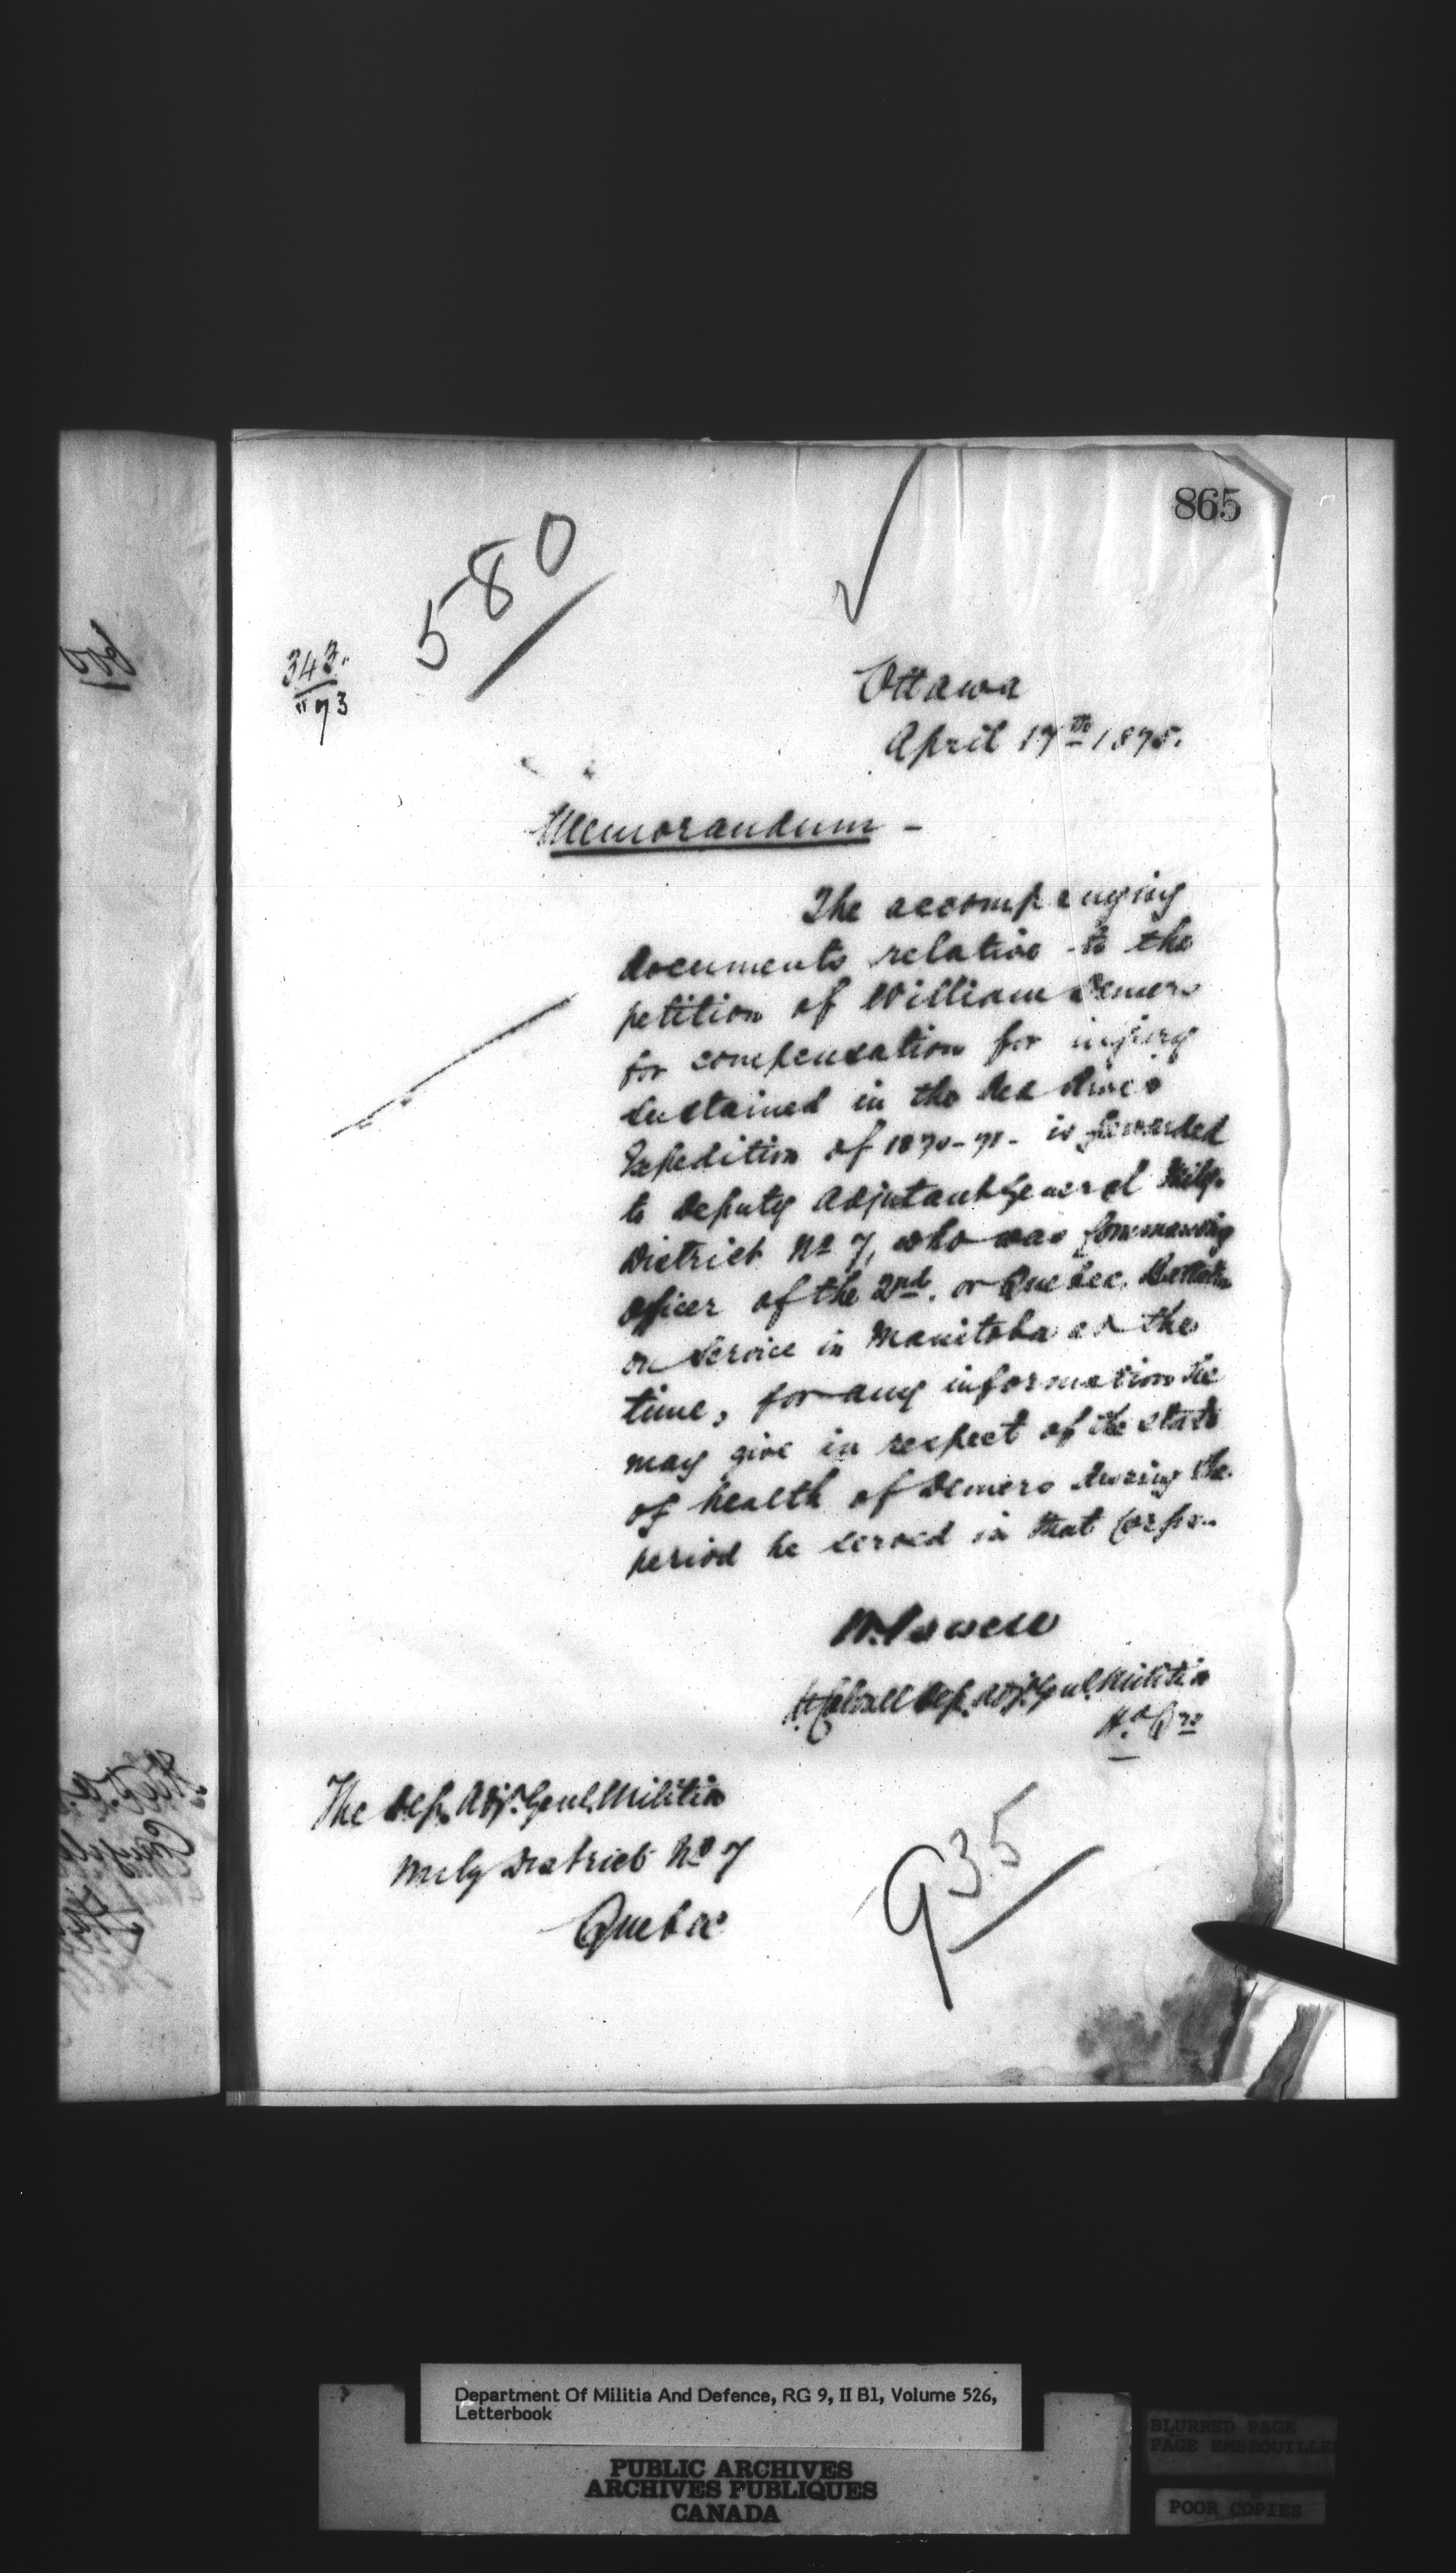 865
580
343.
"73
Ottawa
April 17th 1875.
Memorandum -
The accompanying
documents relative to the
petition of William Demers
for compensation for injury
sustained in the Red River
Expedition of 1870-71- is forwarded
to Deputy Adjutant General Mily.
District No 7, who was Commanding
officer of the 2nd. or Quebec Battalion
on Service in Manitoba at the
time, for any information he
may give in respect of the state
of health of Demers during the
period he served in that Corps.
W. Powell
Dep. Adjt. Genl. Militia
Hd Qrs
The Dep. Adjt. Genl. Militia
Mily District No 7
Quebec
935
Department Of Militia And Defence, RG 9, II B1, Volume 526,
Letterbook
PUBLIC ARCHIVES
ARCHIVES PUBLIQUES
CANADA
BLURRED PAGE
PAGE EMBROUILLE
POOR COPIES